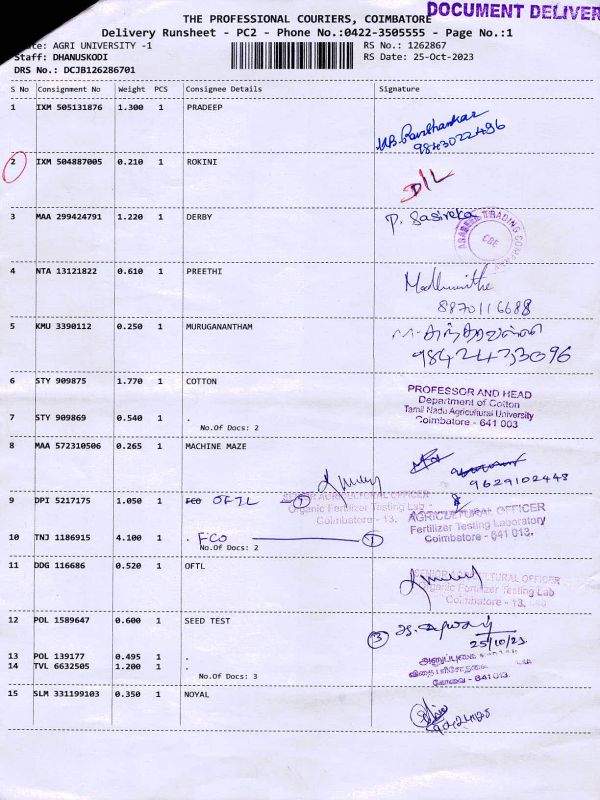 DOCUMENT DELIVER
THE PROFESSIONAL COURIERS, COIMBATORE
Delivery Runsheet - PC2 - Phone No.:0422-3505555 - Page No.:1
Route: AGRI UNIVERSITY -1 RS No.: 1262867
Staff: DHANUSKODI RS Date: 25-Oct-2023
DRS No.: DCJB126286701
S No Consignment No Weight PCS Consignee Details Signature
1 IXM 505131876 1.300 1 PRADEEP
9843022496
2 IXM 504887005 0.210 1 ROKINI
D/L
3 MAA 299424791 1.220 1 DERBY P. Sasireka
TRADING COMPANY
CBE
4 NTA 13121822 0.610 1 PREETHI
8870116688
5 KMU 3390112 0.250 1 MURUGANANTHAM
9842423096
6 STY 909875 1.770 1 COTTON
PROFESSOR AND HEAD
Department of Cotton
Tamil Nadu Agricultural University
Coimbatore - 641 003
7 STY 909869 0.540 1 .
No.Of Docs: 2
8 MAA 572310506 0.265 1 MACHINE MAZE
9629102448
9 DPI 5217175 1.050 1 FCO OFTL 1
SENIOR AGRICULTURAL OFFICER
Organic Fertilizer Testing Lab
Coimbatore - 13.
AGRICULTURAL OFFICER
Fertilizer Testing Laboratory
Coimbatore - 641 013.
10 TNJ 1186915 4.100 1 . FCO 1
No.Of Docs: 2
11 DDG 116686 0.520 1 OFTL
SENIOR AGRICULTURAL OFFICER
Organic Fertilizer Testing Lab
Coimbatore - 13.
12 POL 1589647 0.600 1 SEED TEST
3
25/10/23
13 POL 139177 0.495 1 .
14 TVL 6632505 1.200 1 .
No.Of Docs: 3
அனுப்புகை
கோவை - 641 013.
15 SLM 331199103 0.350 1 NOYAL